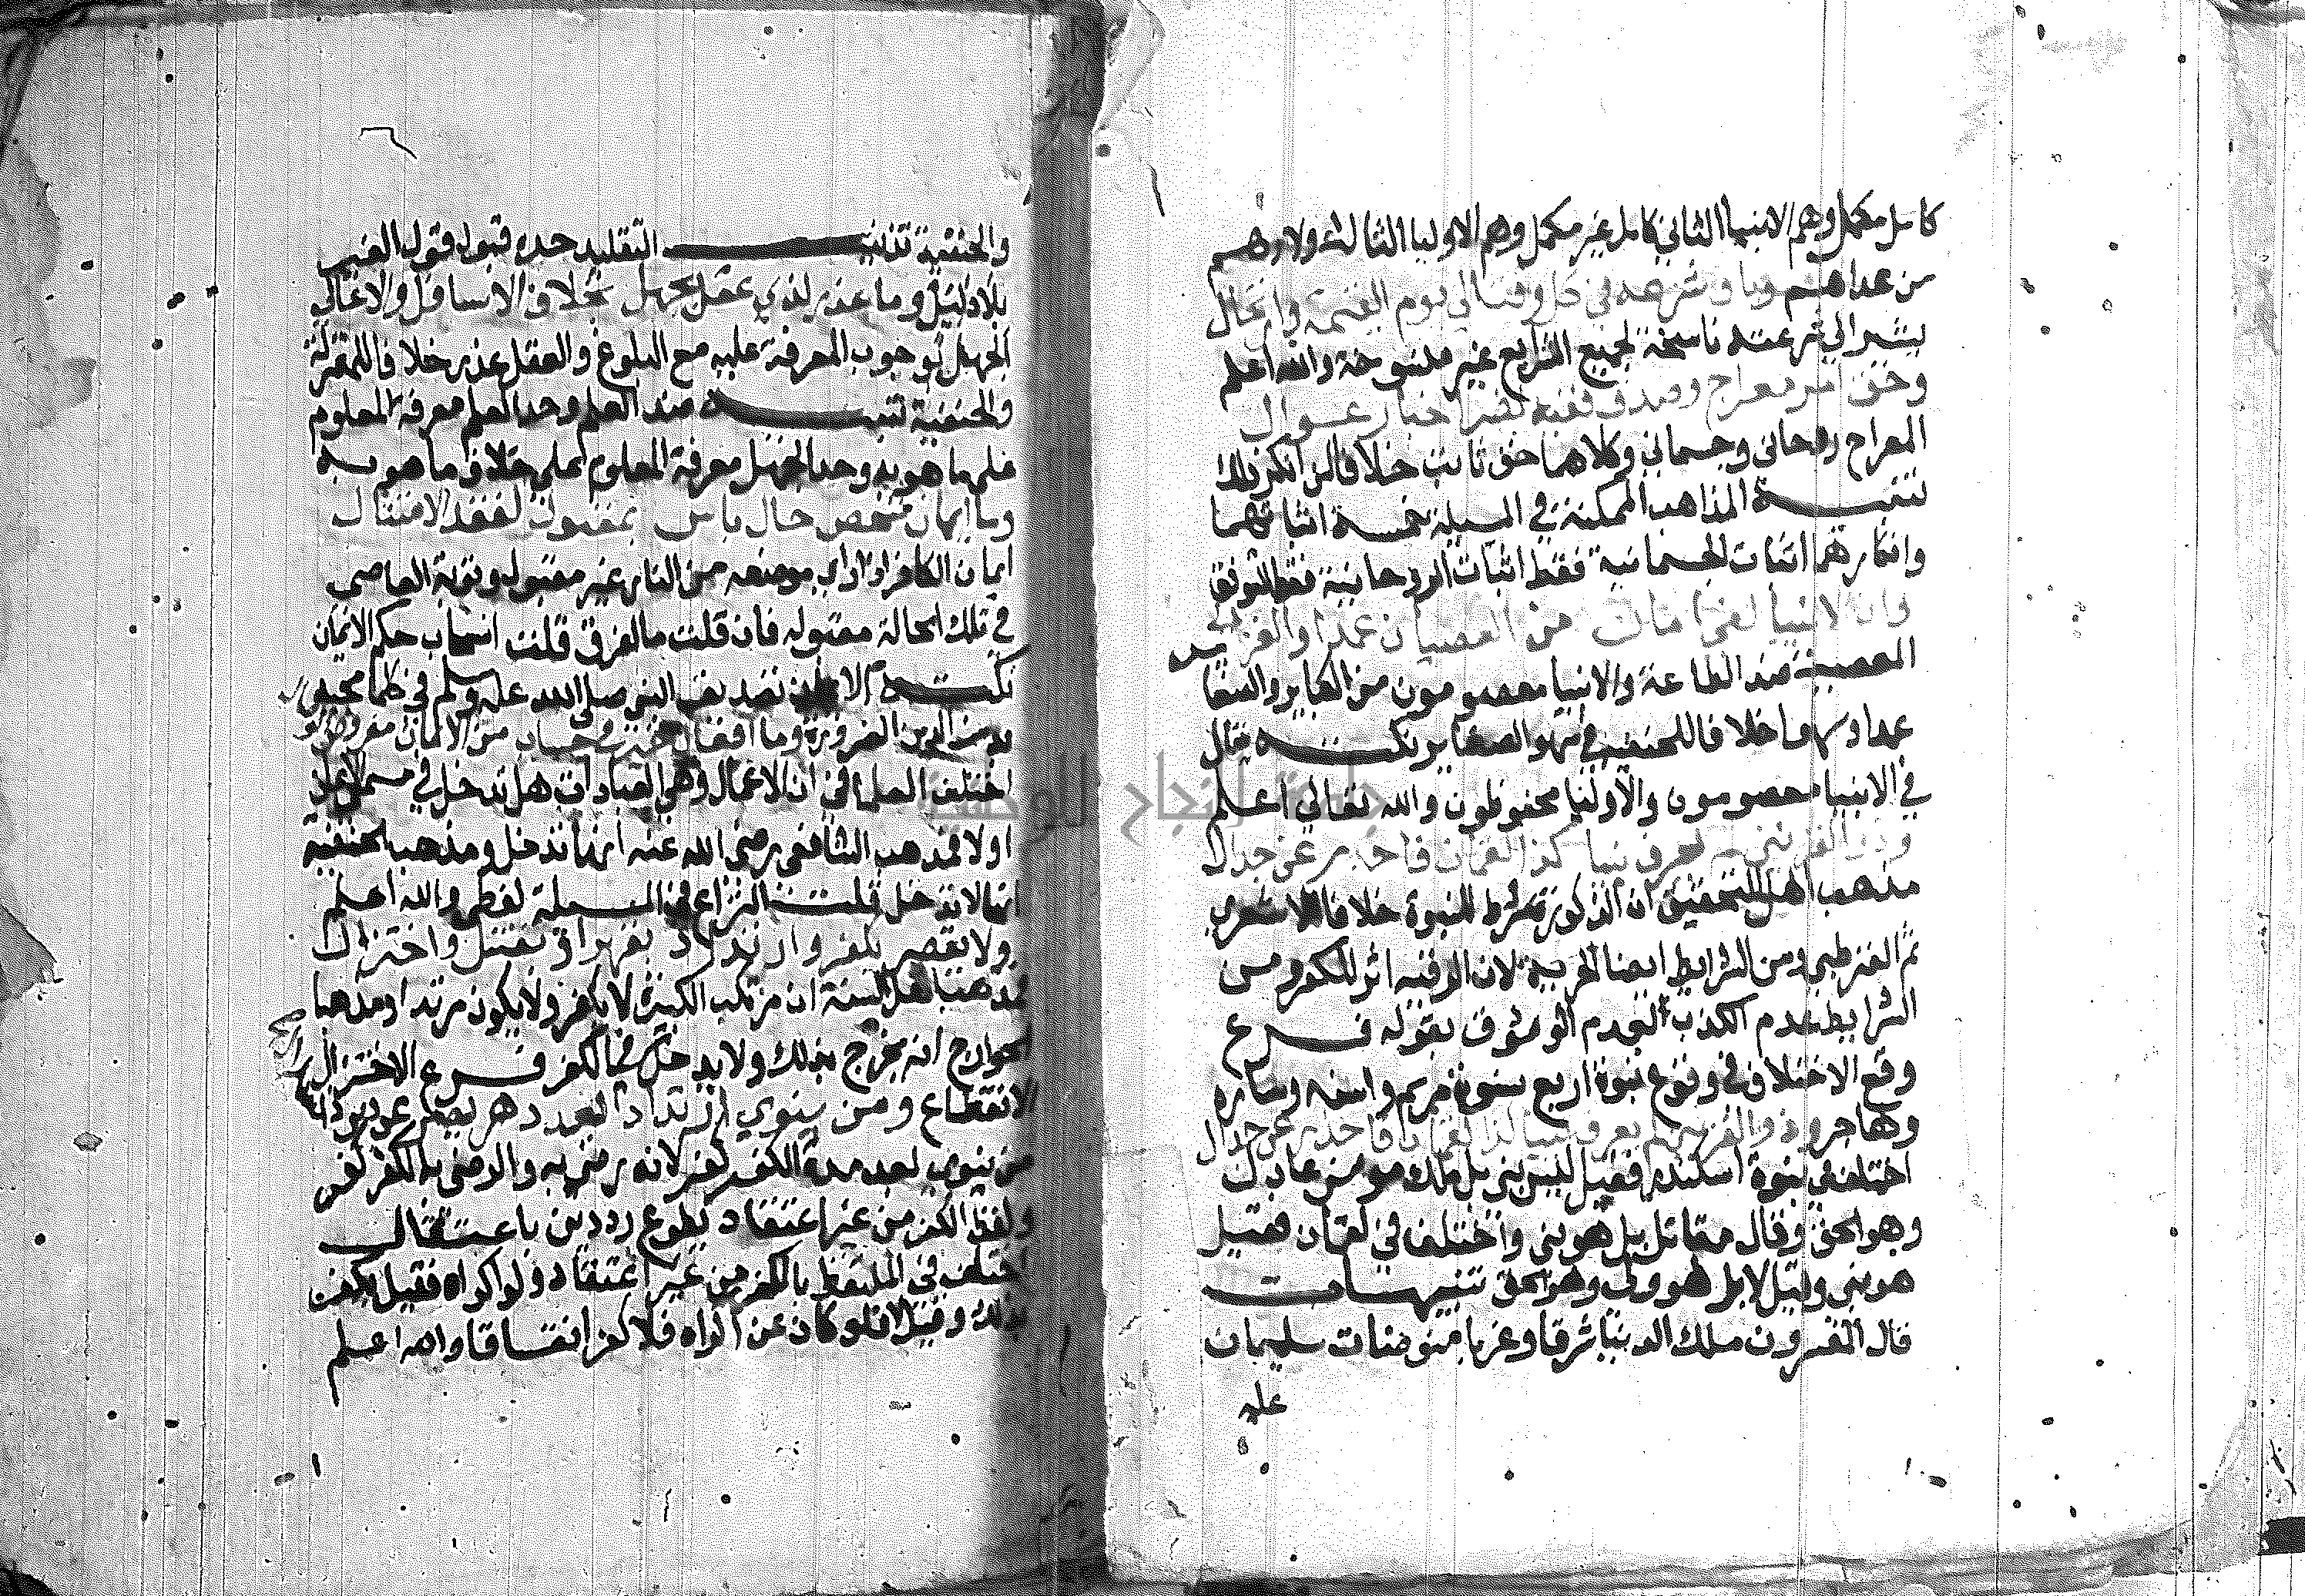 كامل مكمل وهم الانبيا الثاني كامل غير مكمل وهم الاوليا الثالث ولا وهم
من عداهم وباق شرعه في كل وقت الي يوم القيمة وارتحال
يشير الي شرعته ناسخة لجميع الشرايع غير منسوخة والله اعلم
وحق امر معراج وصدق ففيه نص اخبار عوال
المعراج روحاني وجسماني وكلاهما حق ثابت خلافا لمن انكر ذلك
تنبيه المذاهب الممكنة في المسيلة خمسة اثباتهما
وانكارهما اثبات الجسمانية فقط اثبات الروحانية فقط التوقف
وان الانبيا لفي امان من العصيان عمدا وانعزال
المعصية ضد الطاعة والانبيا معصومون من الكباير والصغا
عمدا وسهوا خلافا للحنفية في سهو الصغاير نكتة يقال
في الانبيا معصومون والاوليا محفوظون والله تعالي اعلم
وذو القرنين لم يعرف نبيا كذا لقمان فاحذر عن جدال
مذهب اهل التحقيق ان الذكورة شرط للنبوة خلافا للاشعري
ثم القرطبي ومن الشرايط ايضا الحرية لان الرق فيه اثر الكفر ومن
الشرايط عدم الكذب لعدم الوثوق بقوله فرع
وقع الاختلاف في وقوع نبوة اربع نسوة مريم واسية وساره
وهاجر وذو القرنين لم يعرف نبيا كذا لقمان فاحذر عن جدال
اختلف في نبوة اسكندر فقيل ليس بنبي بل ملك مومن عادل
وهو الحق وقال مقاتل بل هو نبي واختلف في لقمان فقيل
هو نبي وقيل لا بل هو ولي وهو الحق تنبيهات
قال المفسرون ملك الدنيا شرقا وغربا مومنان سليمان
عليه
والحنفية تذنيب التقليد حده قبول قول الغير
بلا دليل وما عذر لذي عقل بجهل بخلاق الاسافل والاعالي
الجهل لوجوب المعرفة عليه مع البلوغ والعقل عذر خلافا للمعتزلة
والحنفية تنبيه ضد العلم وحد العلم معرفة المعلوم
علي ما هو به وحد الجهل معرفة المعلوم علي خلاف ما هو به
وما ايمان شخص حال باس بمقبول لفقد الامتثال
ايمان الكافر اذا راي موضعه من النار غير مقبول وتوبة العاصي
في تلك الحالة مقبوله فان قلت ما الفرق قلت انسحاب حكم الايمان
نكتة الايمان تصديق النبي صلي الله عليه وسلم في كلما مجيئه
من الدين الضرورة وما افعال خير في حساب من الايمان مفروض
اختلف العلما في ان الاعمال وهي العبادات هل تدخل في مسمي الايمان
اولا فمذهب الشافعي رضي الله عنه انها تدخل ومذهب الحنفية
انها لا تدخل قلت النزاع في المسيلة لفظي والله اعلم
ولا يقضي بكفر وارتداد بعهر او بقتل واختزال
مذهب اهل السنة ان مرتكب الكبيرة لا يكفر ولا يكون مرتدا ومذهب
الخوارج انه يخرج بذلك ولا يدخل في الكفر فرع الاختزال
الانقطاع ومن ينوي ارتدادا بعد دهر يصر عن دين
من ينوي بعد مدة الكفر كفر لانه رضي به والرضي بالكفر كفر
ولفظ الكفر من غير اعتقاد بطوع رد دين باعتقال
اختلف في المتلفظ بالكفر من غير اعتقاد ولو اكراه فقيل يكفر
بذلك وقيل لا فلو كان عن اكراه فلا كفر اتفاقا والله اعلم